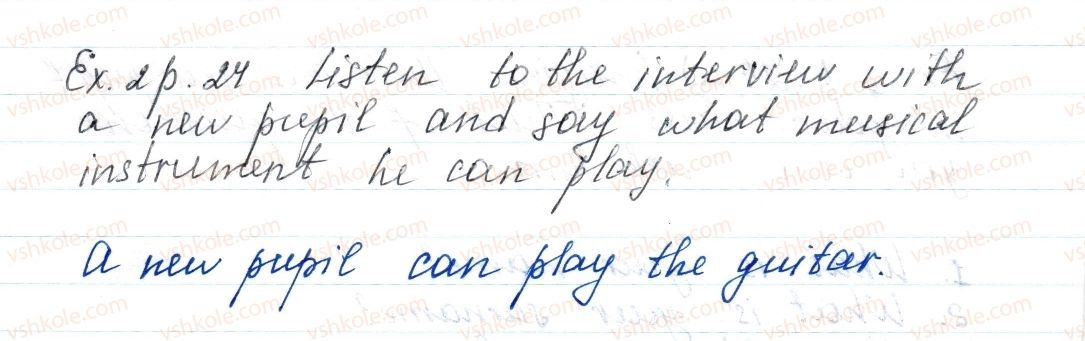 Ex. 2 p. 24 Listen to the interview with
a new pupil and say what musical
instrument he can play.
A new pupil can play the guitar.